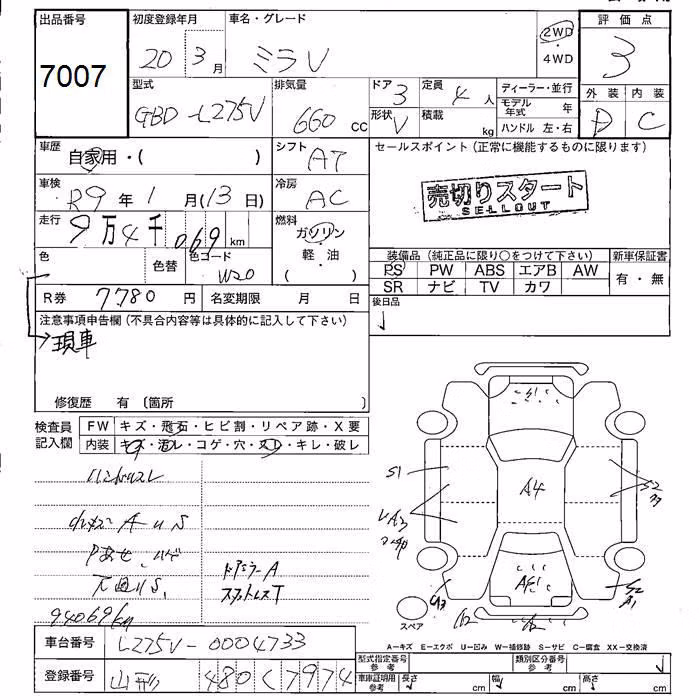 出品番号
7007
初度登録年月
20 3月
車名・グレード
ミラV
2WD
・
4WD
評価点
3
型式
GBD-L275V
排気量
660 cc
ドア
3
形状
V
定員
4 人
積載
kg
ディーラー・並行
モデル年式 年
ハンドル 左・右
外装
内装
D
C
車歴
自家用・( )
シフト
AT
セールスポイント (正常に機能するものに限ります)
売切りスタート
SELLOUT
車検
R9 年 1 月(13 日)
冷房
AC
走行
9万4千069 km
燃料
ガソリン
・
軽・油
( )
色
色替
色コード
W20
装備品 (純正品に限り○をつけて下さい)
新車保証書
PS PW ABS エアB AW
SR ナビ TV カワ
有・無
R券 7780 円
名変期限 月 日
後日品
注意事項申告欄 (不具合内容等は具体的に記入して下さい)
現車
修復歴 有 〔箇所 〕
検査員
記入欄
FW キズ・飛石・ヒビ割・リペア跡・X要
内装 キズ・汚レ・コゲ・穴・スレ・キレ・破レ
ハンドルスレ
A U S
ドアミラーA
94069km
S1
A4
スペア
A-キズ E-エクボ U-凹み W-補修跡 S-サビ C-腐食 XX-交換済
車台番号
L275V-0004733
登録番号
480 く 7974
型式指定番号
参考
類別区分番号
参考
車庫証明用
参考
長さ cm
幅 cm
高さ cm